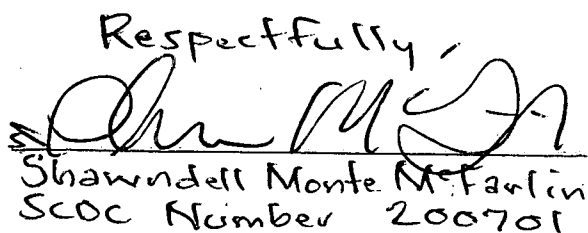 Respectfully,
Shawndell Monte McFarlin
SCDC Number 200701